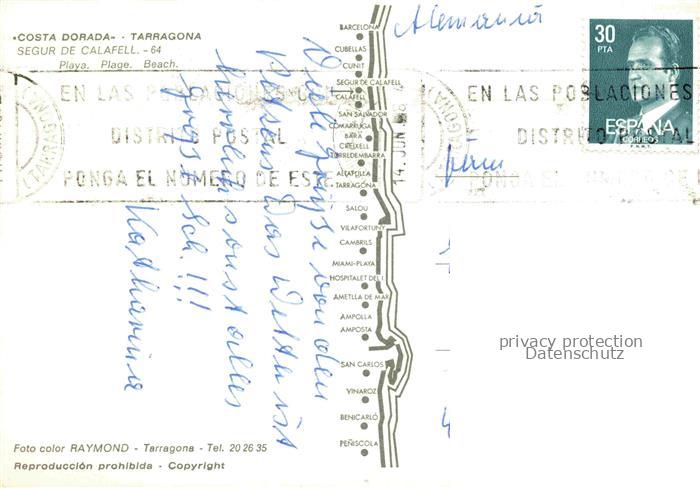 «COSTA DORADA» - TARRAGONA
SEGUR DE CALAFELL. - 64
Playa. Plage. Beach.
Viele Grüße von den
Das Wetter ist
sonst alles
Sch. !!!
Katharina
BARCELONA
CUBELLAS
CUNIT
SEGUR DE CALAFELL
CALAFELL
SAN SALVADOR
COMARRUGA
BARA
CREIXELL
TORREDEMBARRA
ALTAFULLA
TARRAGONA
SALOU
VILAFORTUNY
CAMBRILS
MIAMI-PLAYA
HOSPITALET DEL I.
AMETLLA DE MAR
AMPOLLA
AMPOSTA
SAN CARLOS
VINAROZ
BENICARLÓ
PEÑISCOLA
Alemania
30
PTA
ESPAÑA
CORREOS
F.N.M.T.
EN LAS POBLACIONES CON
DISTRITO POSTAL
PONGA EL NUMERO DE ESTE
(TARRAGONA)
14. JUN
EN LAS POBLACIONES
DISTRITO POSTAL
PONGA EL NUMERO DE
privacy protection
Datenschutz
4
Foto color RAYMOND - Tarragona - Tel. 20 26 35
Reproducción prohibida - Copyright